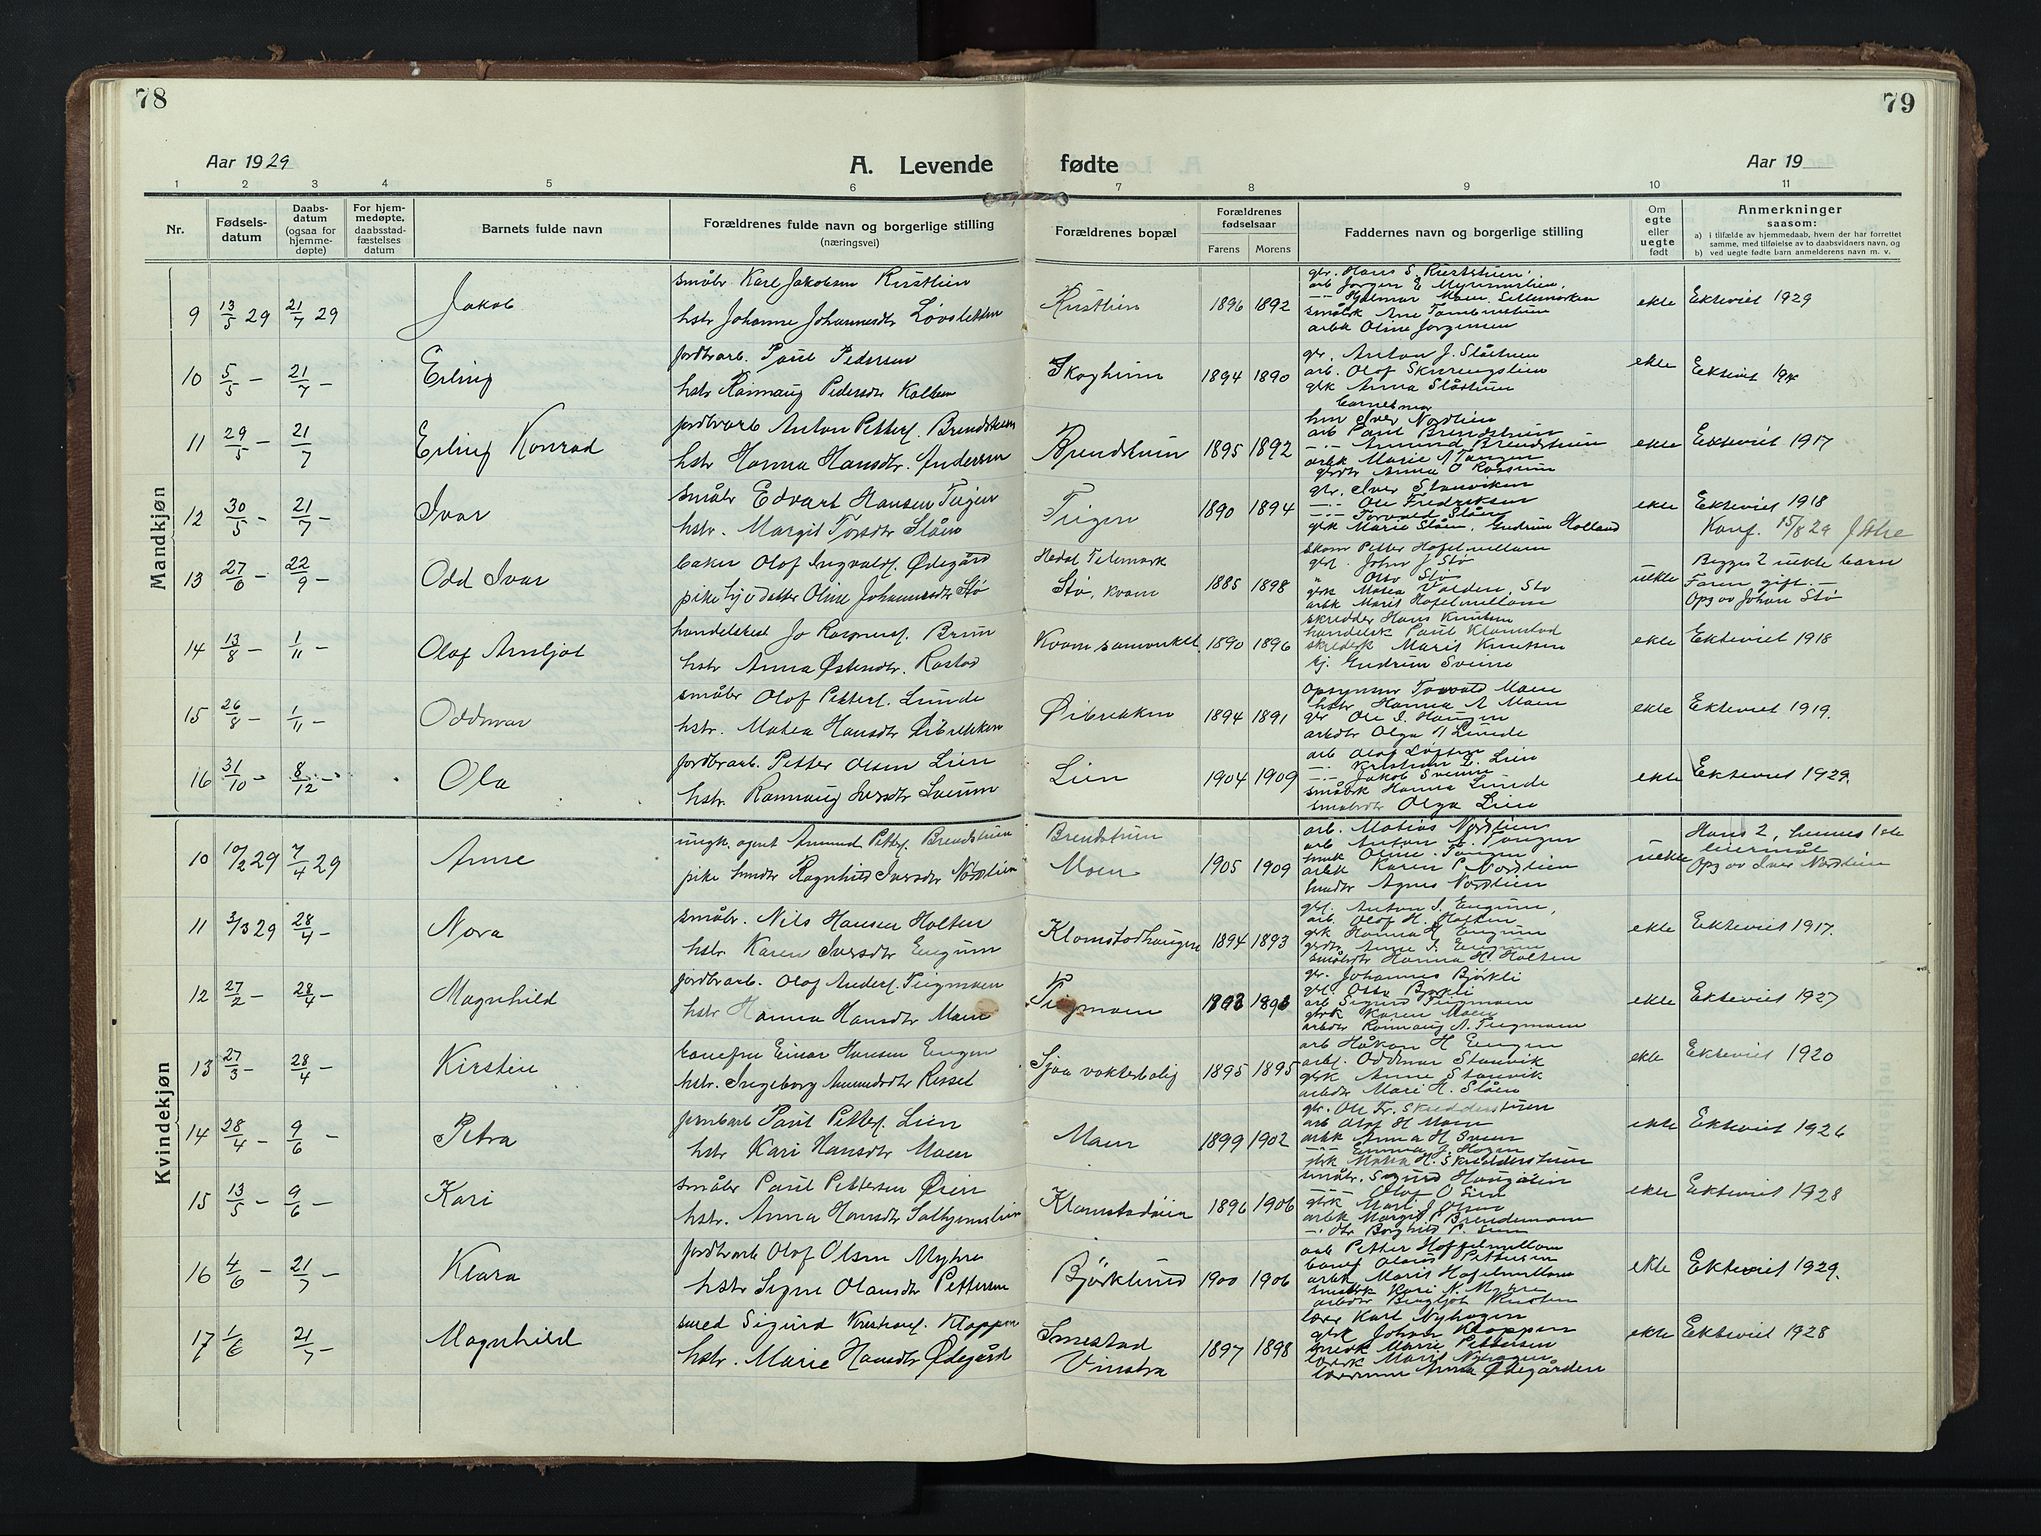 78
79
Aar 1929
A. Levende
fødte
Aar 19
1 2 3 4 5 6 7 8 9 10 11
Nr.
Fødsels-
datum
Daabs-
datum
(ogsaa for
hjemme-
døpte)
For hjem-
medøpte,
daabsstad-
fæstelses
datum
Barnets fulde navn
Forældrenes fulde navn og borgerlige stilling
(næringsvei)
Forældrenes bopæl
Forældrenes
fødselsaar
Farens Morens
Faddernes navn og borgerlige stilling
Om
egte
eller
uegte
født
Anmerkninger
saasom:
a) i tilfælde av hjemmedaab, hvem der har forrettet
samme, med tilføielse av to daabsvidners navn, og
b) ved uegte fødte barn anmelderens navn m. v.
Mandkjøn
9 13/5 29 21/7 29 Jakob
småbr. Karl Jakobsen Rustlien
hstr Johanne Johannesdtr Løvsletten
Rustlien 1896 1892
gbr. Hans S. Ruststuen
arb Jørgen E Myrmoslien
arbk Oline Jørgensen
ekte Ekteviet 1929
10 5/5 – 21/7 – Erling
jordbrarb. Paul Pedersen
hstr Rannaug Pedersdtr Kolten
Skogheim 1894 1890
gbr. Anton J. Slåstuen
arb. Olof Skurengslien
gbk Anna Slåstuen
ekte Ekteviet
11 29/5 – 21/7 Erling Konrad
jordbrarb Anton Petters. Brendstuen
hstr Hanna Hansdtr. Andersen
Brendstuen 1895 1892
Iver Nordlien
arb Paul Brendstuen
–"– Amund Brendstuen
arbk Marie A Tangen
gbrdtr Anna O Rossum
ekte Ekteviet 1917
12 30/5 – 21/7 – Ivar
småbr Edvart Hansen Teigen
hstr. Margit Torsdtr Slåen
Teigen 1890 1894
gbr. Iver Stanviken
–"– Ole Fredriksen
–"– Torvald Slåen
gbk Marie Slåen, Gudrun Holland
ekte Ekteviet 1918
Konf. 15/8 29
13 27/6 – 22/9 – Odd Ivar
baker Olof Ingvalds. Ødegård
pike hj v datter Oline Johannesdtr Stø
Hedal Telemark
Stø, Kvam 1885 1898
gbr. Johan J Stø
" Otto Stø
gbk Matea Volden, Stø
arbk Marit Hofelmellom
uekte Begges 2 uekte barn
Faren gift. –
Opg av Johan Stø
14 13/8 – 1/11 – Olaf Arnljot
handelsbest Jo Rasmuss. Bruun
hstr Anna Østensdtr. Rostad
Kvam samvirkel. 1890 1896
skredder Hans Knutsen
handelsk Paul Klomstad
skredk Marit Knutsen
tj. Gudrun Sveine
ekte Ekteviet 1918
15 26/8 – 1/11 – Oddmar
småbr Olof Petters. Lunde
hstr. Matea Hansdtr Øibrekken
Øibrekken 1894 1891
opsynsm Torvald Moen
hstr Hanna A Moen
gbr Ole I. Haugen
arbdtr Olga A Lunde
ekte Ekteviet 1919.
16 31/10 – 8/12 – Ola
jordbrarb. Petter Olsen Lien
hstr. Rannaug Iversdtr Loeum
Lien 1904 1909
–"– Kristian L. Lien
–"– Jakob Sveine
småbrk Hanna Lunde
småbrdtr Olga Lien
ekte Ekteviet 1929.
Kvindekjøn
10 10/2 29 7/4 29 Anne
ungk. agent Amund Petters. Brendstuen
pike hmdtr Ragnhild Iversdtr Nordlien
Brendstuen
Moen 1905 1909
arb. Matias Nordlien
arb Anton A. Tangen
hmk Oline Tangen
arbk Karen P Nordlien
hmdtr Agnes Nordlien
uekte Hans 2, hennes 1ste
leiermål
Opg av Iver Nordlien
11 3/3 29 28/4 – Nora
småbr. Nils Hansen Holten
hstr. Karen Iversdtr Engum
Klomstadhaugen 1894 1893
gbr. Anton I. Engum,
arb. Olof H. Holten
gbk Hanna H Engum
gbrdtr Anne I. Engum
småbrdtr Hanna H. Holten
ekte Ekteviet 1917.
12 27/2 – 28/4 – Magnhild
jordbrarb. Olof Anders. Teigmoen
hstr Hanna Hansdtr Moen
Teigmoen
gbr. Johannes Bjørkli
gbr. Otto Bjørkli
arb Sigurd Teigmoen
gbrk Karen Moen
arbdtr Rannaug A. Teigmoen
ekte Ekteviet 1927
13 27/3 – 28/4 – Kirsten
banefm Einar Hansen Engen
hstr. Ingeborg Amundsdtr Ressel
Sjoa vokterbolig 1895 1895
arb Håkon H Engen
arb. Oddmar Stanvik
gbrk Anne Stanvik
arbdtr Mari H. Slåen
ekte Ekteviet 1920
14 28/4 – 9/6 – Petra
jernbarb Paul Petters. Lien
hstr Kari Hansdtr Moen
Moen 1899 1902
gbr. Ole Fr. Skredderstuen
arb Olof H Moen
arbk Anna H Sveen
–"– Emma J. Hagen
gbrk Matea H. Skredderstuen
ekte Ekteviet 1926
15 13/5 – 9/6 – Kari
småbr Paul Pettersen Øien
hstr. Anna Hansdtr
Klomstadøien 1896 1906
småbr. Sigurd Haugalien
–"– Olof O Lien
gbrk Marit J Olsen
arbk Margit Brendemoen
–"– dtr Borghild P. Lien
ekte Ekteviet 1928
16 4/6 – 21/7 – Klara
jordbrarb Olof Olsen Myhre
hstr Signe Olausdtr Pettersen
Bjørklund 1900 1906
arb Petter Hoffelmellom
banef Olaus Pettersen
arbk Marit Hofelmellom
småbrk Kari N. Myhre
arbdtr Bergljot Knutsen
ekte Ekteviet 1929.
17 1/6 21/7 – Magnhild
smed Sigurd Kristians. Kloppen
hstr. Marie Hansdtr Ødegård
Smestad
Vinstra 1897 1898
lærer Karl Nyhagen
gbk Johan Kloppen
smedk Marie Pettersen
lærk Marit Nyhagen
lærerinne Anna Ødegården
ekte Ekteviet 1928